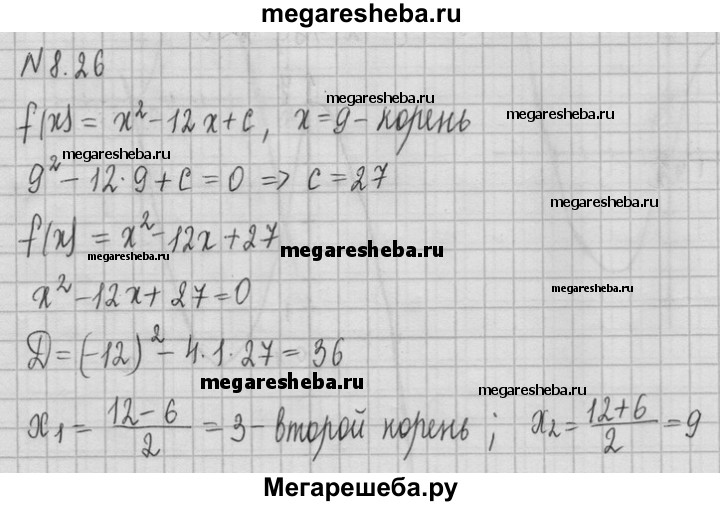 megaresheba.ru
N 8.26
megaresheba.ru
f(x) = x² - 12x + c, x = 9 - корень
megaresheba.ru
megaresheba.ru
9² - 12·9 + c = 0 => c = 27
f(x) = x² - 12x + 27
megaresheba.ru
megaresheba.ru
x² - 12x + 27 = 0
megaresheba.ru
D = (-12)² - 4·1·27 = 36
megaresheba.ru
megaresheba.ru
x₁ = (12-6)/2 = 3 - второй корень; x₂ = (12+6)/2 = 9
Мегарешеба.ру